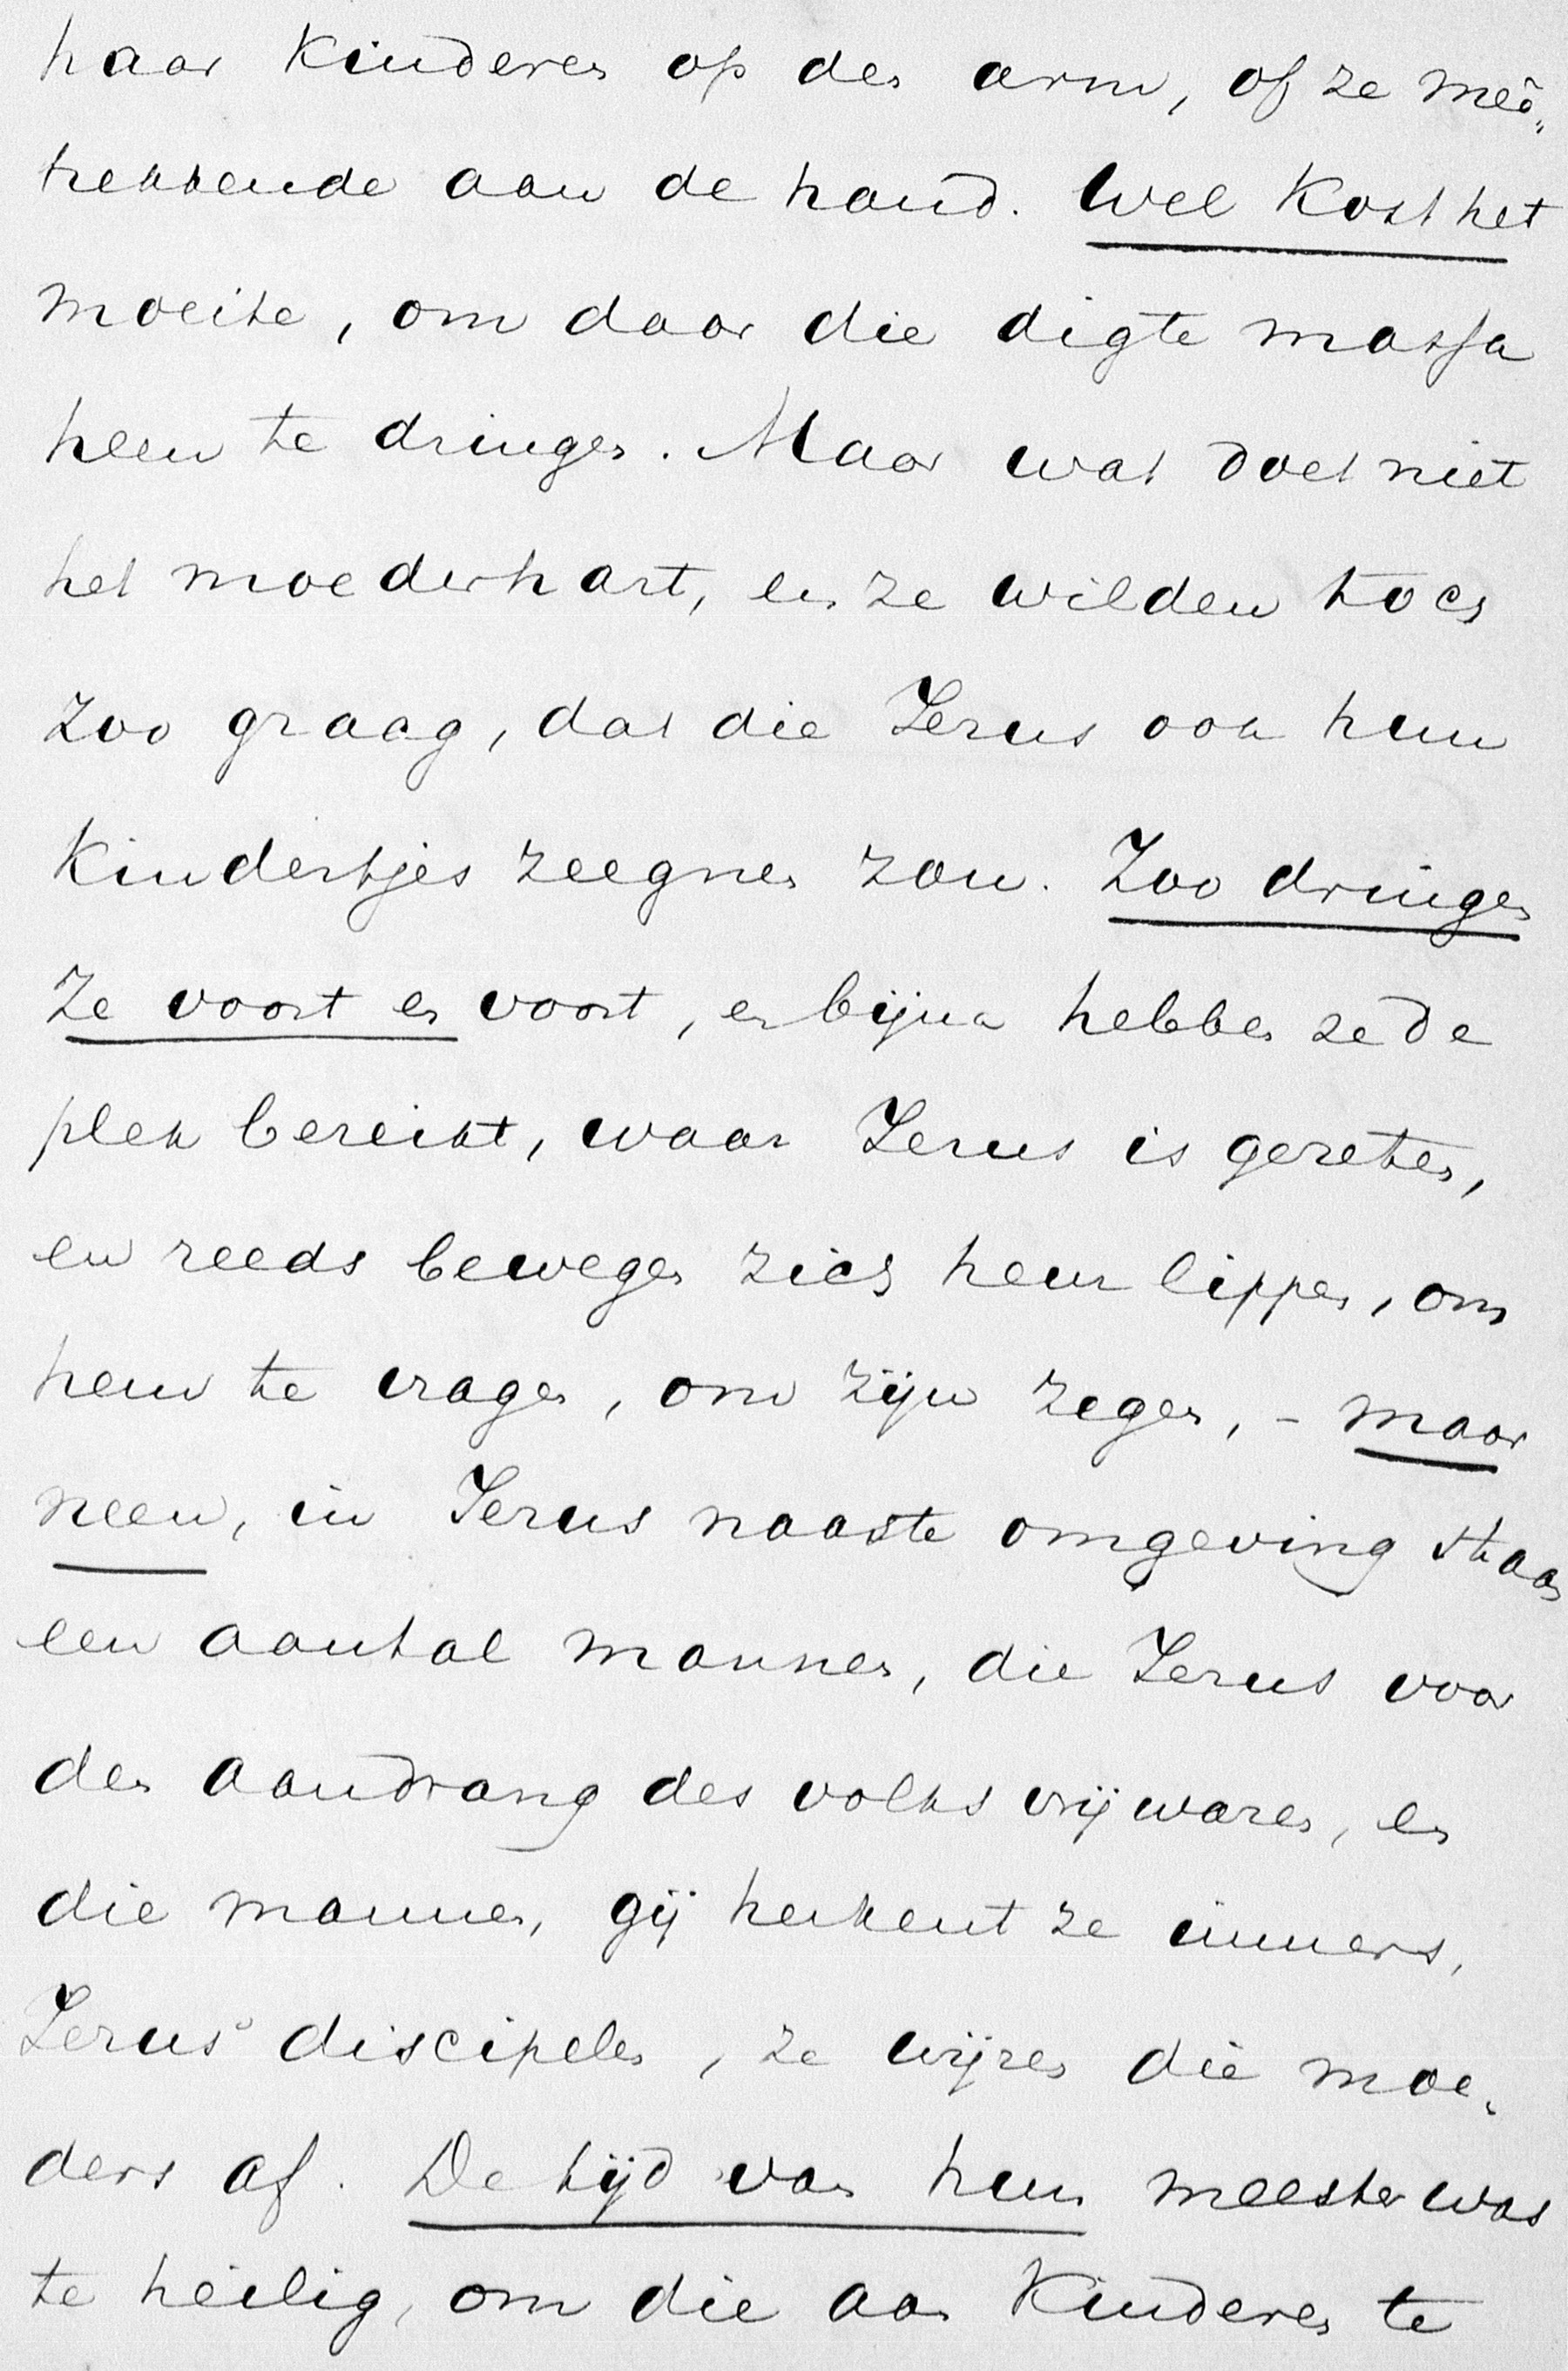 haar kinderen op den arm, of ze meê„
trekkende aan de hand. Wel kost het
moeite, om door die digte massa
heen te dringen. Maar wat doet niet
het moederhart, en ze wilden toch
zoo graag, dat die Jezus ook hun
kindertjes zeegnen zou. Zoo dringen
ze voort en voort, en bijna hebben ze de
plek bereikt, waar Jezus is gezeten,
en reeds bewegen zich heur lippen, om
hem te vragen, om zijn zegen, – maar
neen, in Jezus naaste omgeving staan
een aantal mannen, die Jezus voor
den aandrang des volks vrijwaren, en
die mannen, gij herkent ze immers,
Jezus' discipelen, ze wijzen die moe„
ders af. De tijd van hun meester was
te heilig, om die aan kinderen te